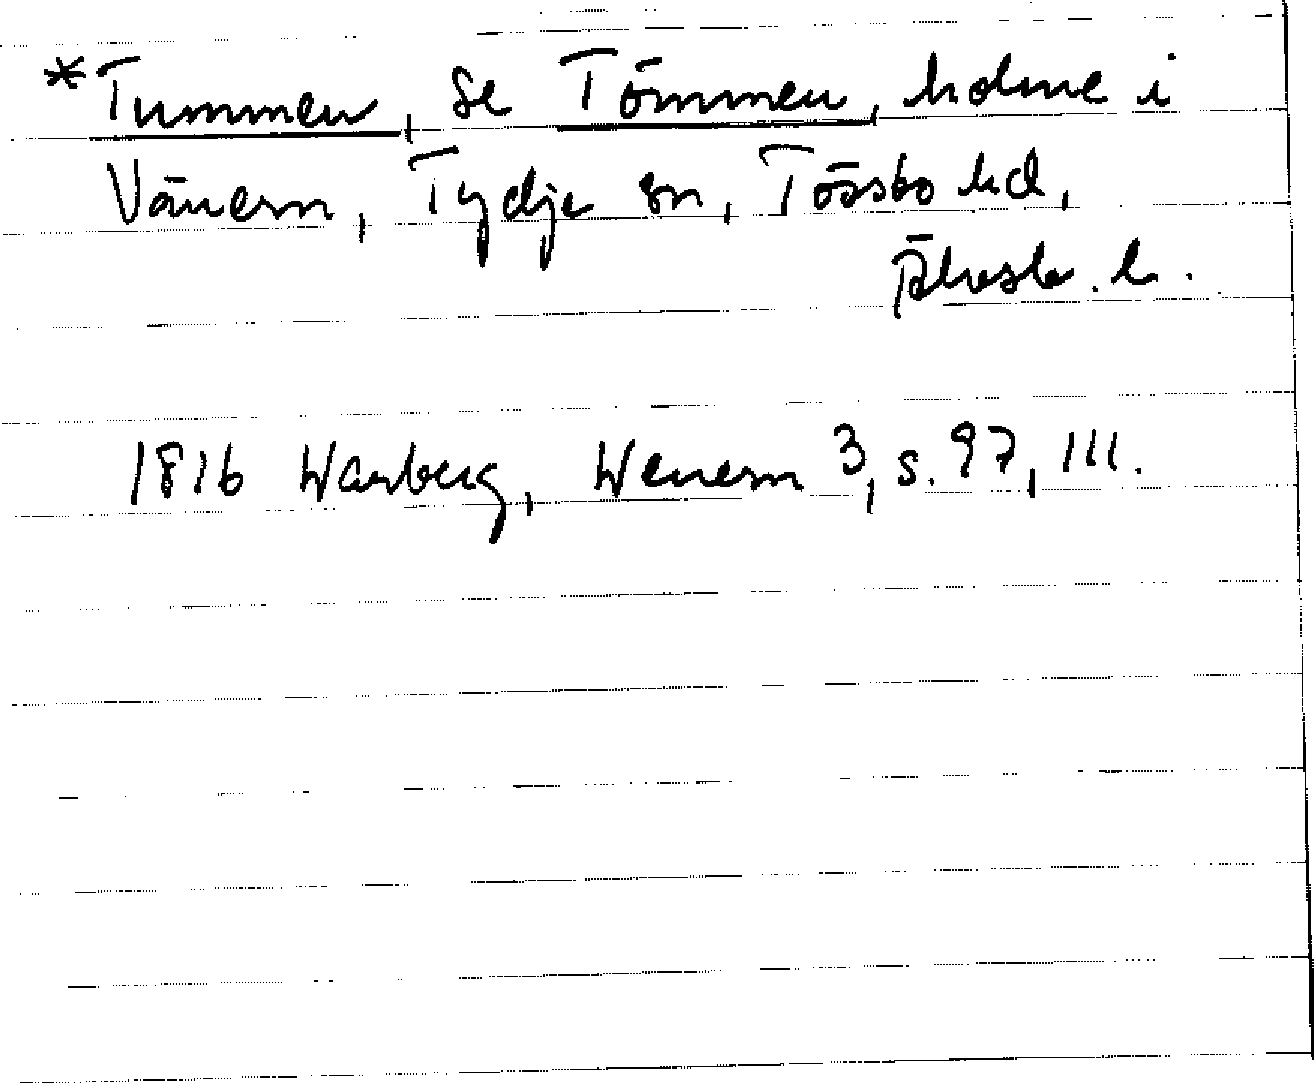 *Tummen, se Tömmen, holme i
Vänern, Tydje sn, Tössbo hd,
Älvsb. l.
1816 Warberg, Wenern 3, s. 97, 111.